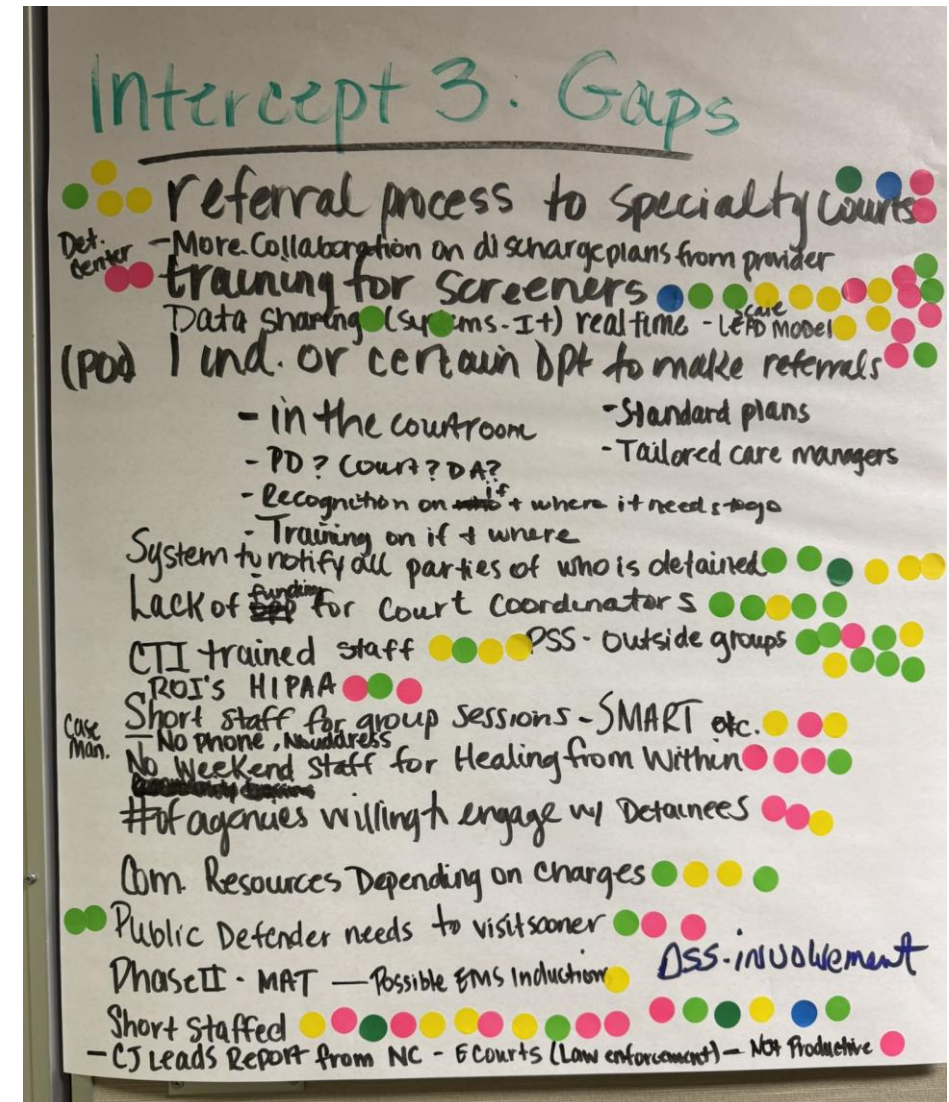 Intercept 3: Gaps
referral process to specialty courts
Det. Center
- More Collaboration on discharge plans from provider
training for screeners
Data Sharing (systems - It) real time - LEAD MODEL
scale
(POD) 1 ind. or certain Dpt to make referrals
- in the courtroom
- Standard plans
- PD? Court? DA?
- Tailored care managers
- Recognition on if + where it needs to go
- Training on if + where
System to notify all parties of who is detained
Lack of funding for Court Coordinators
CTI trained staff
PSS - outside groups
ROI's HIPAA
Case Man.
Short staff for group sessions - SMART etc.
- No phone, No address
No Weekend Staff for Healing from Within
# of agencies willing to engage w/ Detainees
Com. Resources Depending on Charges
Public Defender needs to visit sooner
Phase II - MAT — Possible EMS Induction
DSS - involvement
Short Staffed
- CJ Leads Report from NC - ECourts (Law enforcement) - Not Productive